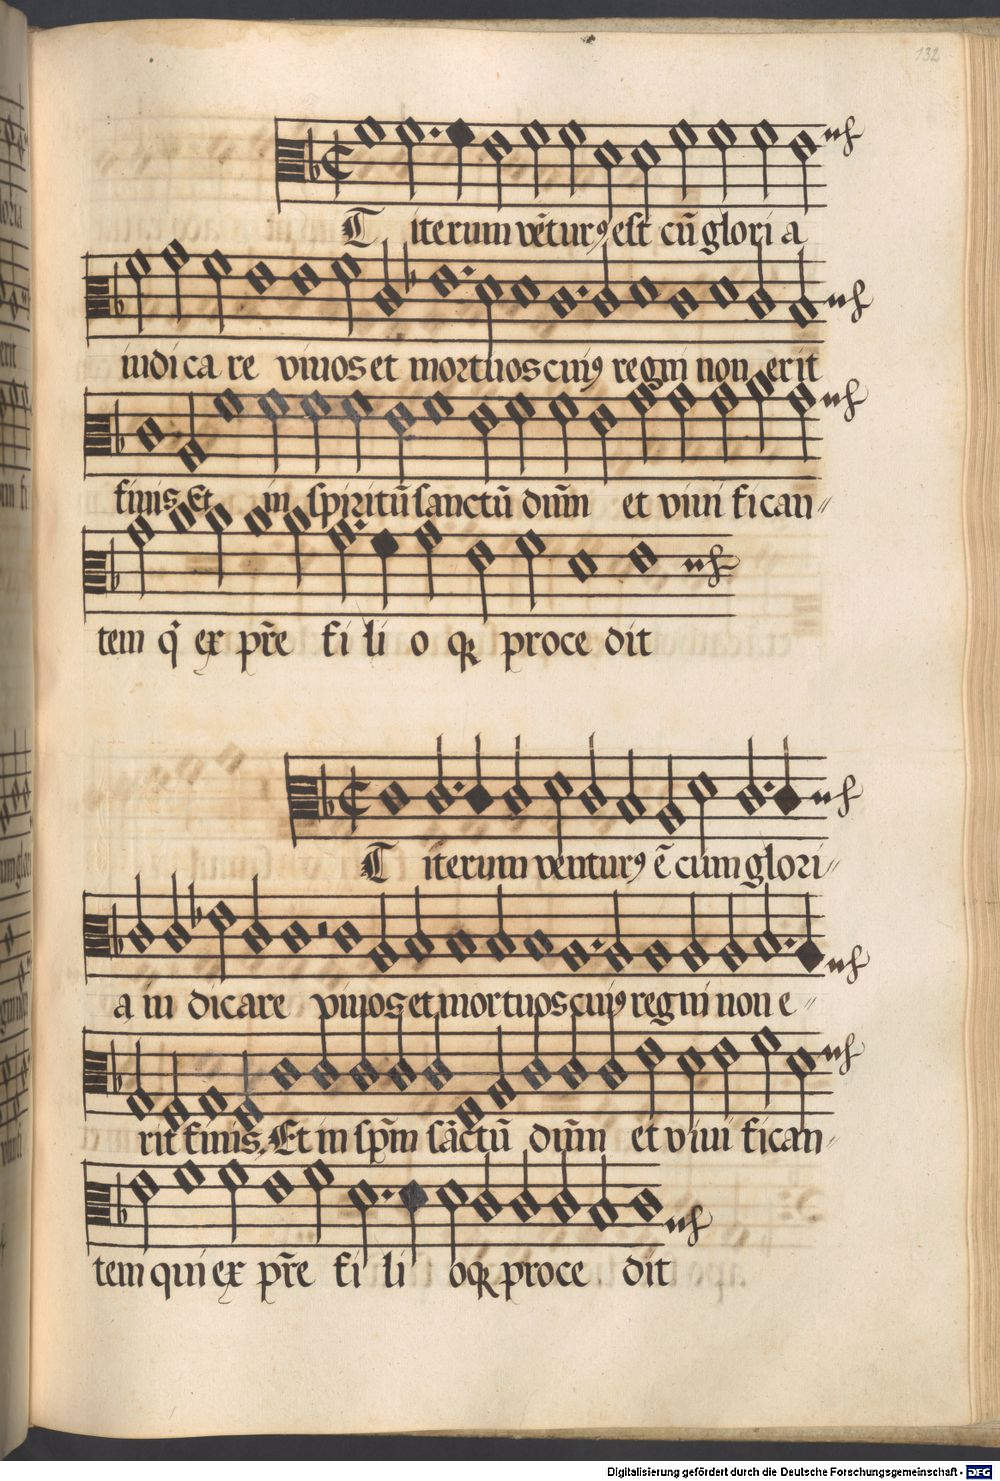 132
Et iterum vẽturꝯ est cũ glori a
iudica re viuos et mortuos cuiꝯ regni non erit
finis Et in spiritũ sanctũ dñm et viui fican〃
tem q̃ ex pr̃e fi li o qꝫ proce dit
Et iterum venturꝯ ẽ cum glori〃
a iu dicare viuos et mortuos cuiꝯ regni non e〃
rit finis. Et in sp̃m sãctũ dñm et viui fican〃
tem qui ex pr̃e fi li oqꝫ proce dit
Digitalisierung gefördert durch die Deutsche Forschungsgemeinschaft - DFG